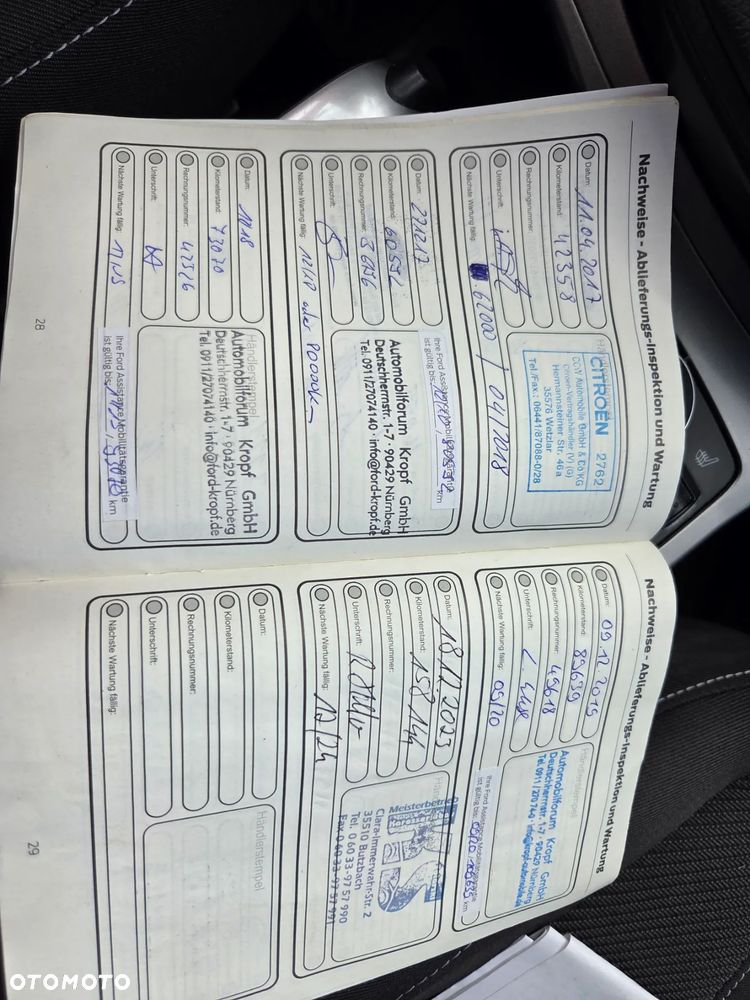 Nachweise - Ablieferungs-Inspektion und Wartung
Datum: 11.04.2017
Kilometerstand: 42358
Rechnungsnummer:
Unterschrift:
Nächste Wartung fällig: 62000 / 04/2018
CITROËN 2762
Automobile GmbH & Co KG
Citroen-Vertragshändler (V) (G)
Hermannsteiner Str. 46a
35576 Wetzlar
Tel./Fax.: 06441/87088-0/28
Datum: 221217
Kilometerstand: 60592
Rechnungsnummer: 36156
Unterschrift:
Nächste Wartung fällig: 12/18 oder 80000km
Ihre Ford Assistance Mobilitätsgarantie
ist gültig bis: km
Automobilforum Kropf GmbH
Deutschherrnstr. 1-7 · 90429 Nürnberg
Tel. 0911/27074140 · info@ford-kropf.de
Datum: 1218
Kilometerstand: 73070
Rechnungsnummer: 42326
Unterschrift:
Nächste Wartung fällig:
Händlerstempel
Automobilforum Kropf GmbH
Deutschherrnstr. 1-7 · 90429 Nürnberg
Tel. 0911/27074140 · info@ford-kropf.de
Ihre Ford Assistance Mobilitätsgarantie
ist gültig bis: km
28
Nachweise - Ablieferungs-Inspektion und Wartung
Datum: 09.12.2019
Kilometerstand: 89639
Rechnungsnummer: 49618
Unterschrift:
Nächste Wartung fällig: 09/20
Händlerstempel
Automobilforum Kropf GmbH
Deutschherrnstr. 1-7 · 90429 Nürnberg
Tel. 0911/270 740 · info@kropf-automobile.de
Ihre Ford Assistance Mobilitätsgarantie
ist gültig bis: 09/20 km
Datum: 18.12.2023
Kilometerstand: 158144
Rechnungsnummer:
Unterschrift:
Nächste Wartung fällig: 12/24
Meisterbetrieb
Clara-Immerwahr-Str. 2
35510 Butzbach
Tel. 0 60 33-97 57 990
Fax 0 60 33-97 57 991
Datum:
Kilometerstand:
Rechnungsnummer:
Unterschrift:
Nächste Wartung fällig:
Händlerstempel
29
OTOMOTO